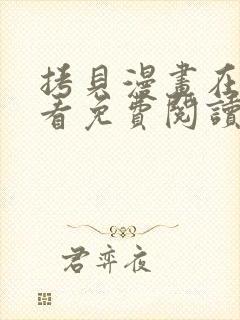 拷貝漫畫在
看免費閱讀
君弈夜